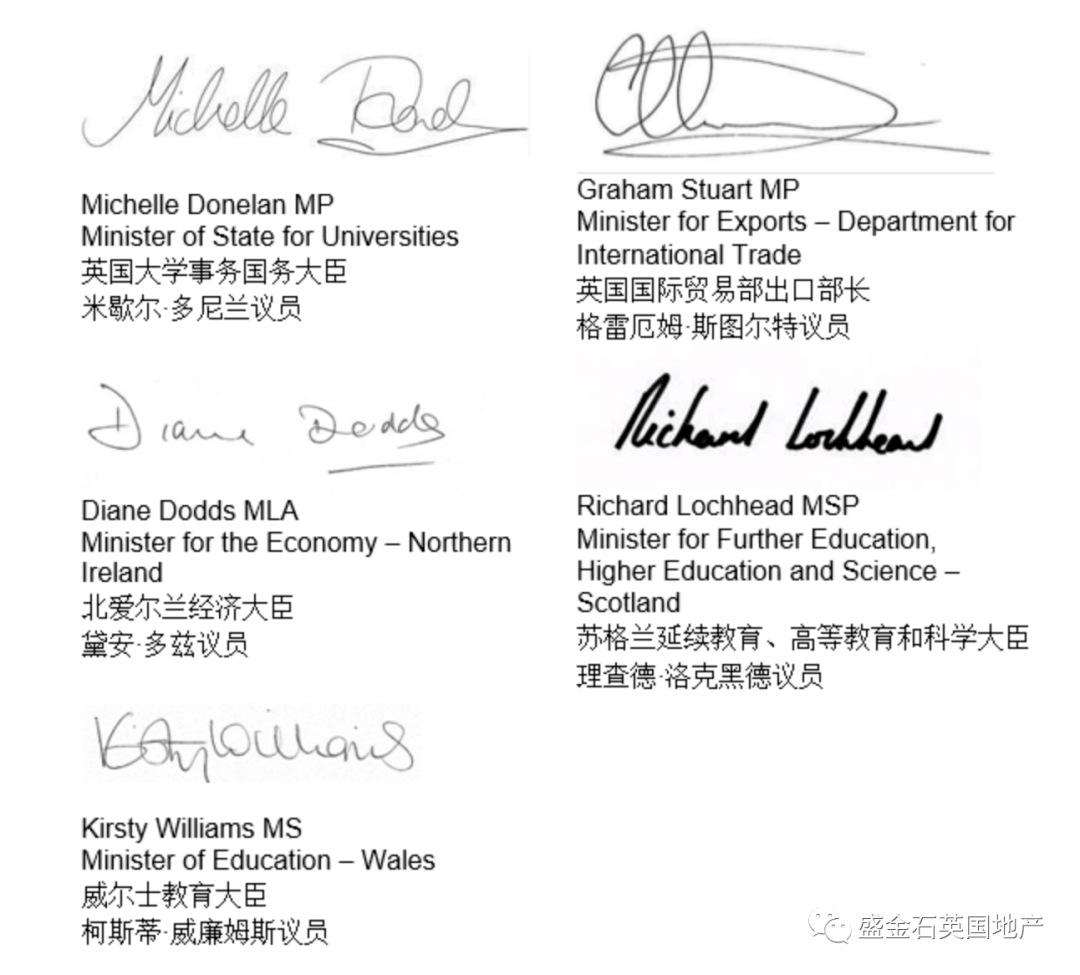 Michelle Donelan MP
Minister of State for Universities
英国大学事务国务大臣
米歇尔·多尼兰议员
Graham Stuart MP
Minister for Exports – Department for
International Trade
英国国际贸易部出口部长
格雷厄姆·斯图尔特议员
Diane Dodds
Diane Dodds MLA
Minister for the Economy – Northern
Ireland
北爱尔兰经济大臣
黛安·多兹议员
Richard Lochhead
Richard Lochhead MSP
Minister for Further Education,
Higher Education and Science –
Scotland
苏格兰延续教育、高等教育和科学大臣
理查德·洛克黑德议员
Kirsty Williams
Kirsty Williams MS
Minister of Education – Wales
威尔士教育大臣
柯斯蒂·威廉姆斯议员
盛金石英国地产